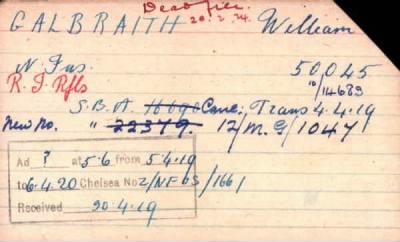 Dead file.
20.2.24.
GALBRAITH William
N. Fus. 50,045
R. I. Rfls 10/14689
S.B.A. 16696 Canc; Trans 4.4.19
New No. " 22379. 12/M.G/1047
Ad ? at 5.6 from 5.4.19
to 6.4.20 Chelsea No 2/NF/65/1661
Received 20.4.19